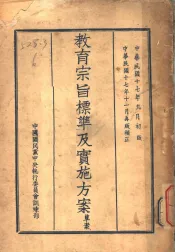 中華民國十七年五月初版
中華民國十七年十二月再版補正
教育宗旨標準及實施方案 草案
中國國民黨中央執行委員會訓練部